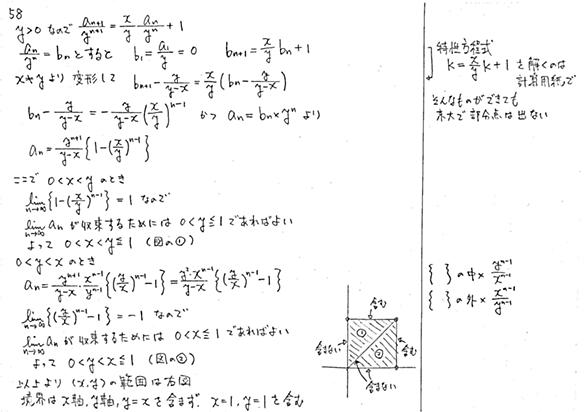 58
y>0 なので a_{n+1}/y^{n+1} = x/y · a_n/y^n + 1
a_n/y^n = b_n とすると b_1 = a_1/y = 0 b_{n+1} = x/y b_n + 1
x≠y より 変形して b_{n+1} - y/(y-x) = x/y (b_n - y/(y-x))
b_n - y/(y-x) = - y/(y-x) (x/y)^{n-1} かつ a_n = b_n × y^n より
a_n = y^{n+1}/(y-x) {1-(x/y)^{n-1}}
ここで 0<x<y のとき
lim_{n→∞} {1-(x/y)^{n-1}} = 1 なので
lim_{n→∞} a_n が収束するためには 0<y≦1 であればよい
よって 0<x<y≦1 (図の①)
0<y<x のとき
a_n = y^{n+1}/(y-x) · x^{n-1}/y^{n-1} {(y/x)^{n-1} - 1} = y²·x^{n-1}/(y-x) {(y/x)^{n-1} - 1}
lim_{n→∞} {(y/x)^{n-1} - 1} = -1 なので
lim_{n→∞} a_n が収束するためには 0<x≦1 であればよい
よって 0<y<x≦1 (図の②)
以上より (x,y) の範囲は右図
境界は x軸, y軸, y=x を含まず. x=1, y=1 を含む
含む
含まない
①
②
含む
含まない
特性方程式
k = x/y k + 1 を解くのは
計算用紙で
そんなものができても
京大で部分点は出ない
{ } の中 × y^{n-1}/x^{n-1}
{ } の外 × x^{n-1}/y^{n-1}